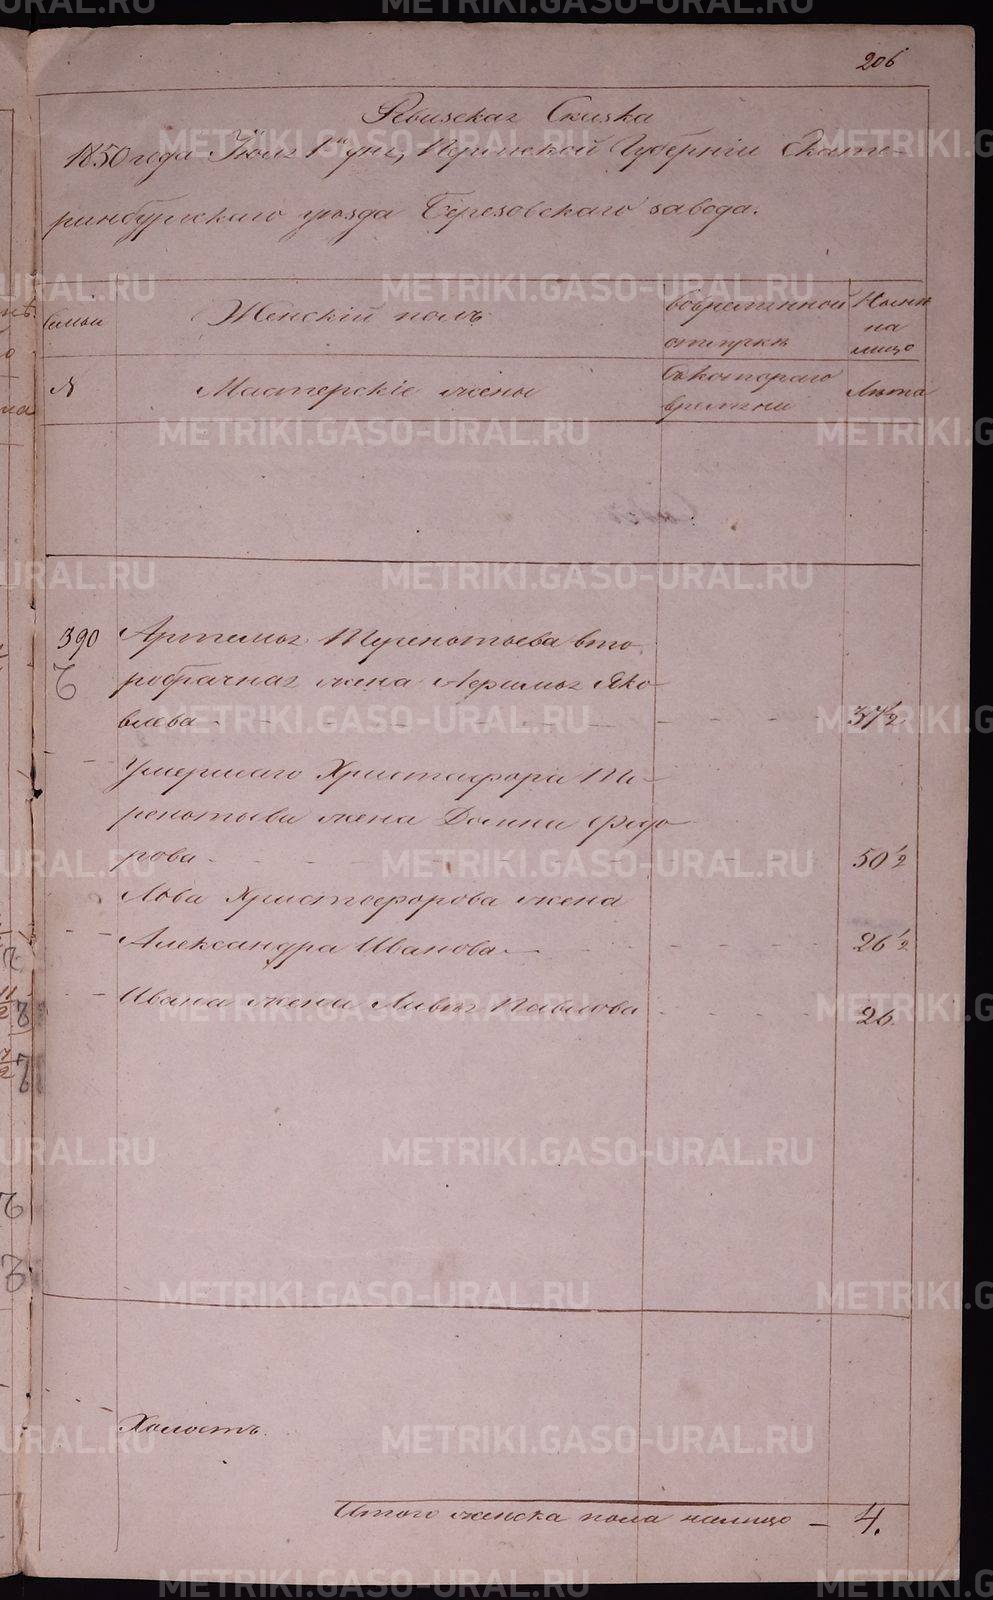 206
Ревизская Сказка
1850 года Июля 1го дня, Пермской Губернiи Екате-
ринбургскаго уезда Березовскаго завода.
Семьи
Женскiй полъ
Вовременной отлучкѣ
Ныне на лицо
№
Мастерскiе жены
Съ котораго времени
Лѣта
390
Артемья Терентьева вто-
робрачная жена Яко-
влева
37 1/2
Умершаго Христофора Те-
рентьева жена Домна Федо-
рова
50 1/2
Льва Христофорова жена
Александра Иванова
26 1/2
Ивана жена Павлова
26
Холостъ.
Итого женска пола налицо – 4.
METRIKI.GASO-URAL.RU